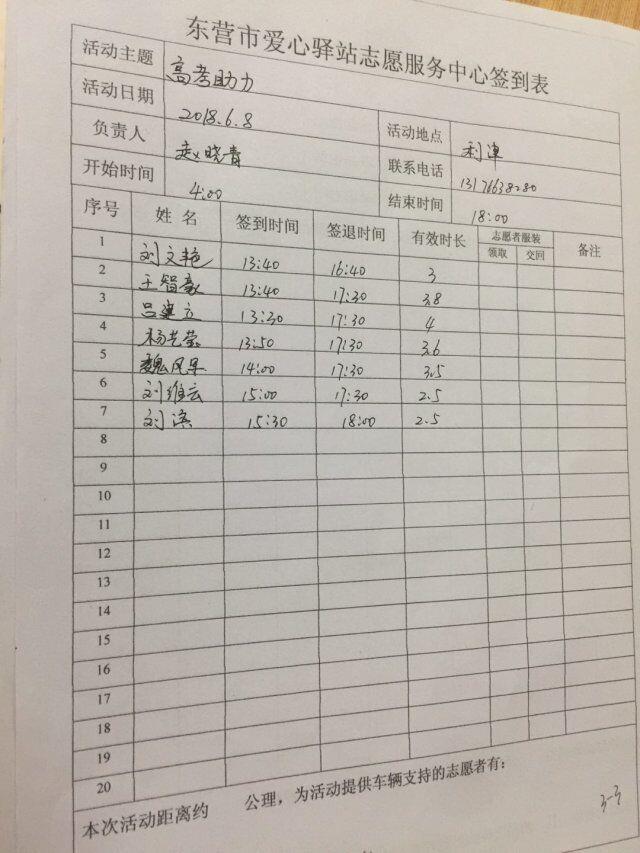 东营市爱心驿站志愿服务中心签到表
活动主题 高考助力
活动日期 2018.6.8 活动地点 利津
负责人 赵晓青 联系电话 13176638280
开始时间 4:00 结束时间 18:00
序号 姓名 签到时间 签退时间 有效时长 志愿者服装 备注
领取 交回
1 刘文艳 13:40 16:40 3
2 王智豪 13:40 17:30 3.8
3 吕建立 13:30 17:30 4
4 杨艺莹 13:50 17:30 3.6
5 魏风果 14:00 17:30 3.5
6 刘维云 15:00 17:30 2.5
7 刘滨 15:30 18:00 2.5
8
9
10
11
12
13
14
15
16
17
18
19
20
本次活动距离约 公理，为活动提供车辆支持的志愿者有：
3-3